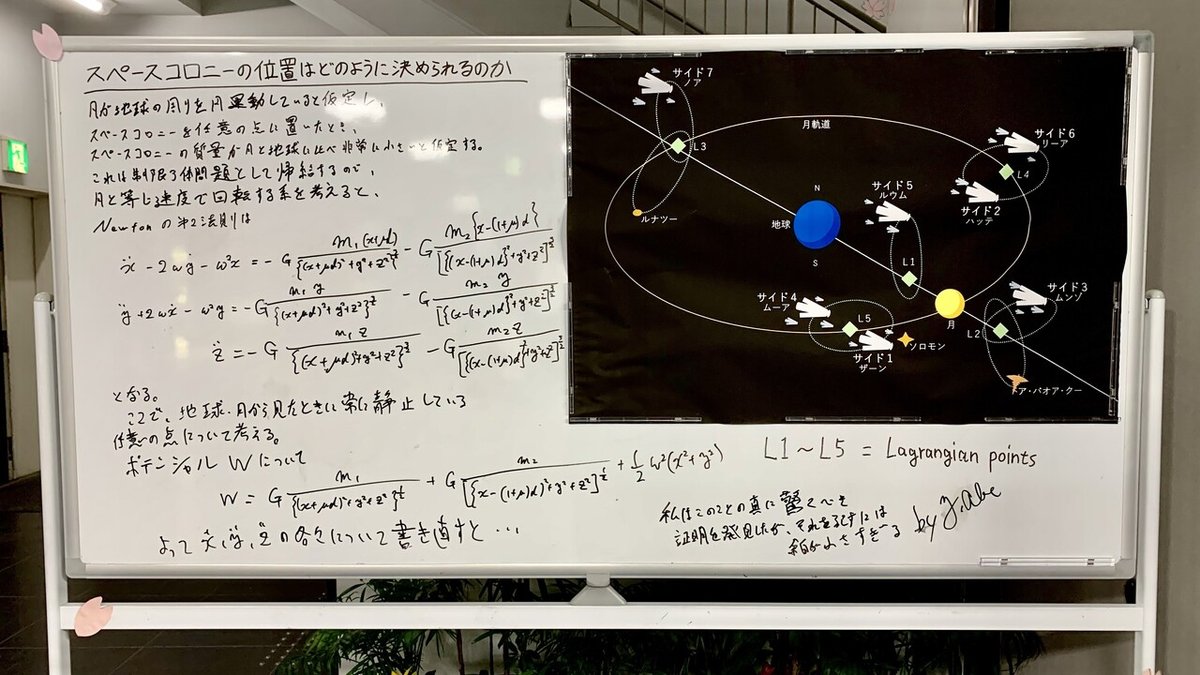 スペースコロニーの位置はどのように決められるのか
月が地球の周りを円運動していると仮定し、
スペースコロニーを任意の点に置いたとき、
スペースコロニーの質量が月と地球に比べ非常に小さいと仮定する。
これは制限3体問題として帰結するので、
月と等しい速度で回転する系を考えると、
Newtonの第2法則は
ẍ - 2ωẏ - ω²x = -G m₁(x+μd)/{(x+μd)²+y²+z²}^{3/2} - G m₂{x-(1+μ)d}/[{(x-(1+μ)d}²+y²+z²]^{3/2}
ÿ + 2ωẋ - ω²y = -G m₁y/{(x+μd)²+y²+z²}^{3/2} - G m₂y/[{(x-(1+μ)d}²+y²+z²]^{3/2}
z̈ = -G m₁z/{(x+μd)²+y²+z²}^{3/2} - G m₂z/[{(x-(1+μ)d}²+y²+z²]^{3/2}
となる。
ここで、地球・月から見たときに常に静止している
任意の点について考える。
ポテンシャル Wについて
W = G m₁/{(x+μd)²+y²+z²}^{1/2} + G m₂/[{x-(1+μ)d}²+y²+z²]^{1/2} + 1/2 ω²(x²+y²)
よって ẍ, ÿ, z̈ の各々について書き直すと…
サイド7
ノア
L3
ルナツー
月軌道
サイド6
リーア
L4
サイド2
ハッテ
サイド5
ルウム
N
地球
S
L1
サイド3
ムンゾ
月
L2
サイド4
ムーア
L5
サイド1
ザーン
ソロモン
ア・バオア・クー
L1～L5 = Lagrangian points
私はこのことの真に驚くべき
証明を発見したが、それを記すには
余白が小さすぎる
by y.abe